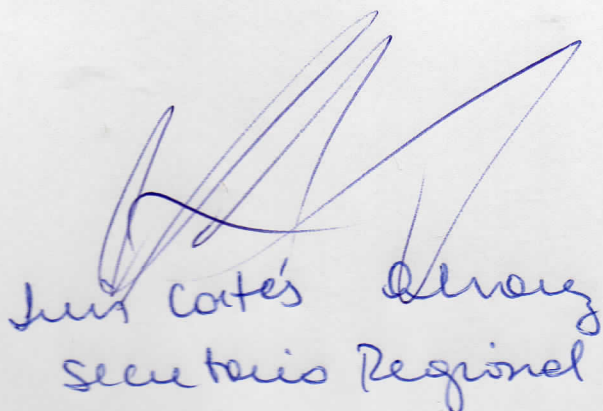 Luis Cortés Alvarez
Secretario Regional